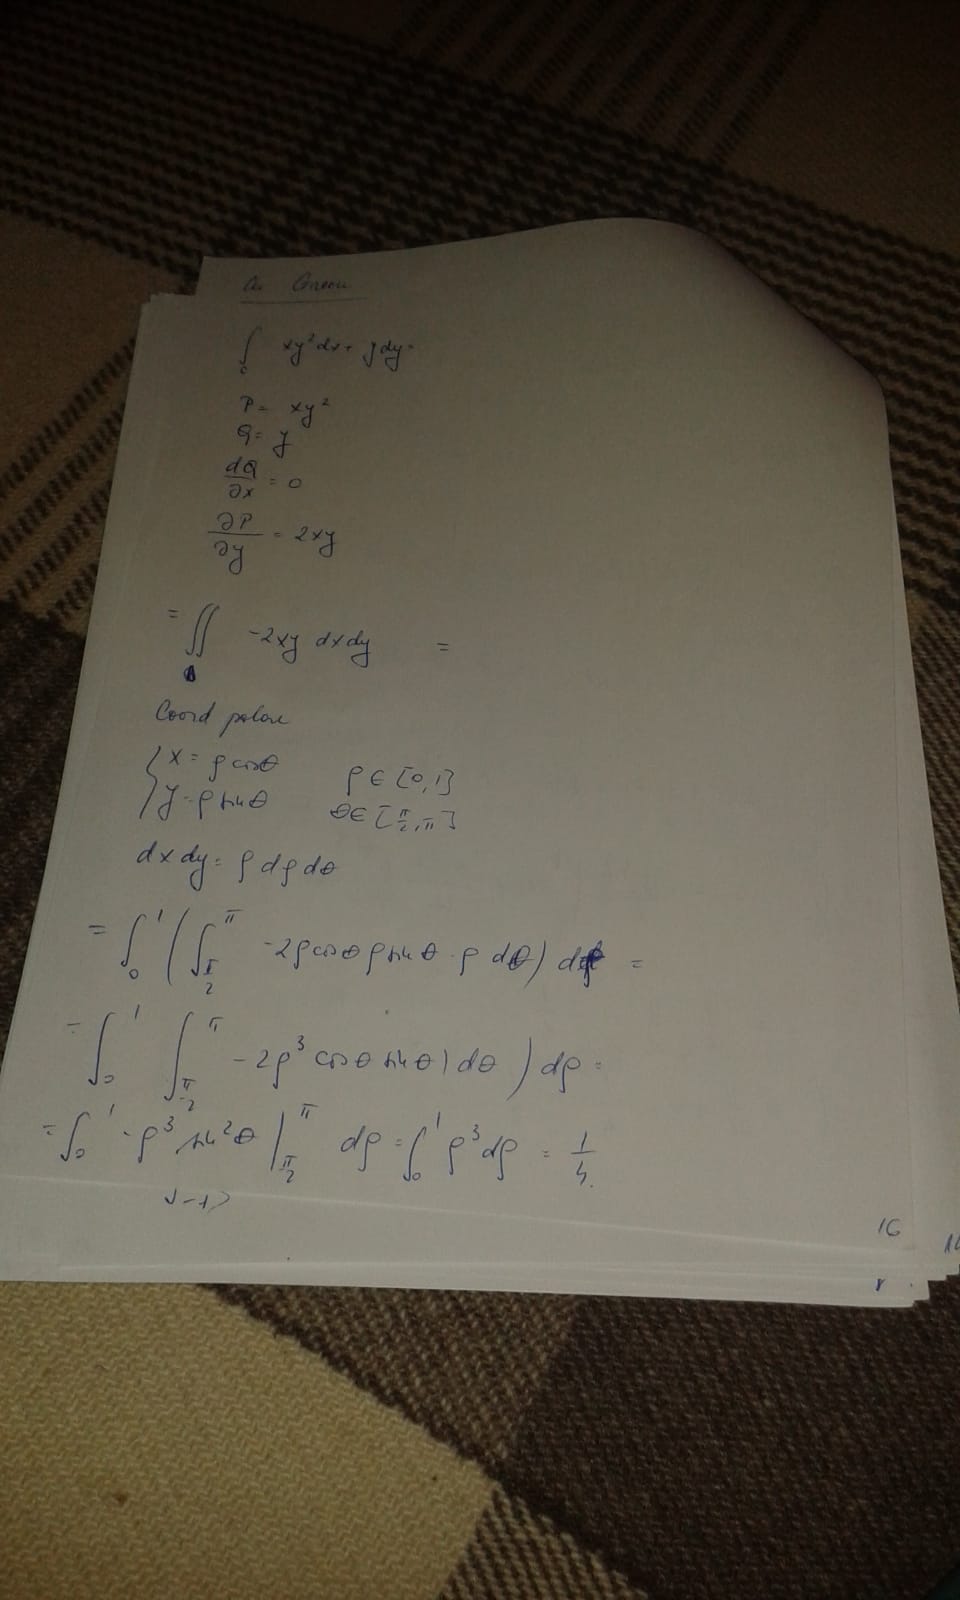 Cu Green
∫₀ xy² dx + y dy =
P = xy²
Q = y
dQ/∂x = 0
∂P/∂y = 2xy
= ∬ -2xy dx dy =
Coord polare
{ x = ρ cosθ ρ ∈ [0,1]
y = ρ sinθ θ ∈ [π/2, π]
dx dy = ρ dρ dθ
= ∫₀¹ ( ∫_{π/2}^{π} -2ρ cosθ ρ sinθ · ρ dθ) dρ =
= ∫₀¹ ∫_{π/2}^{π} -2ρ³ cosθ sinθ) dθ ) dρ =
= ∫₀¹ -ρ³ sin²θ |_{π/2}^{π} dρ = ∫₀¹ ρ³ dρ = 1/4.
16